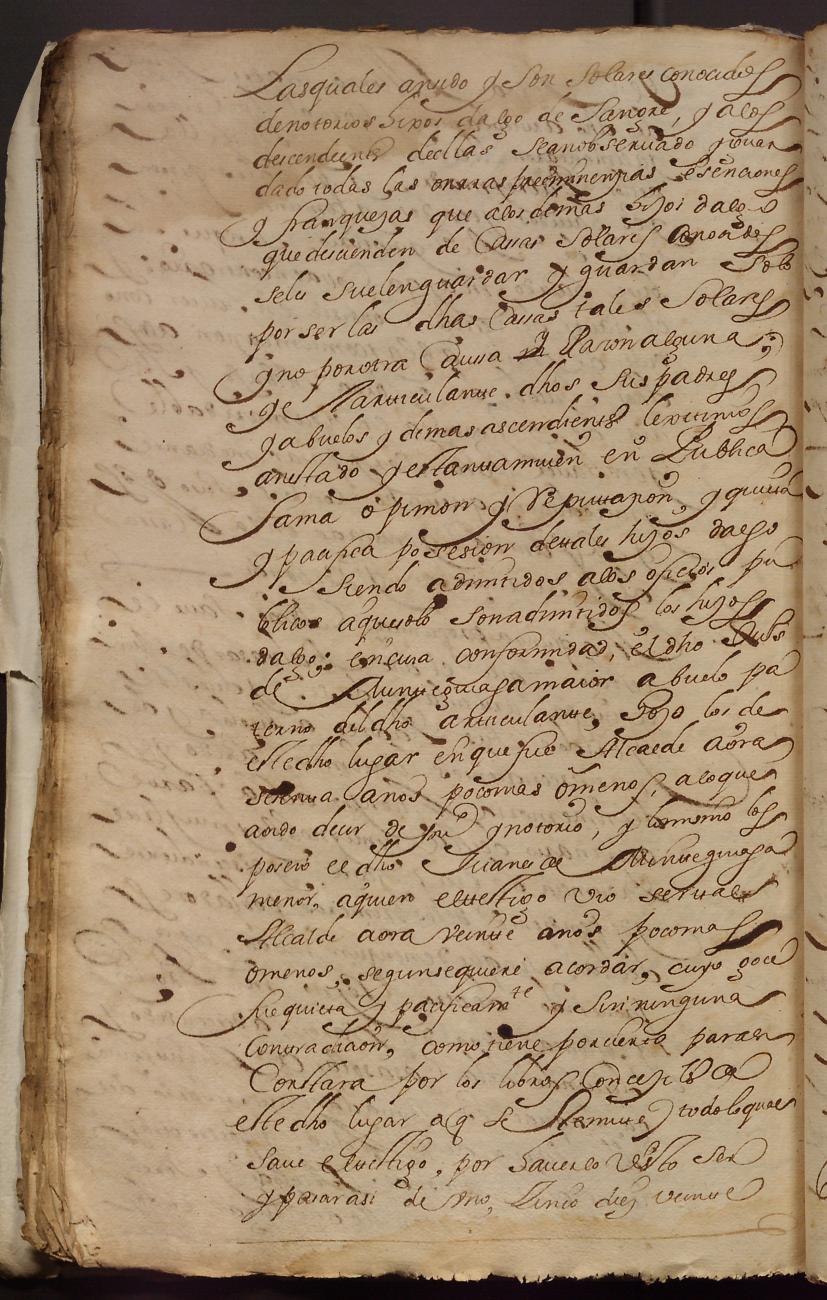 Lasquales ansido y son solares conocidos
denotorios hixos dalgo de sangre, y alos
descendientes dellas seanobseruado yguar
dado todas las onrras preeminenzias esenciones
y franquezas que alos demas hijos dalgo
que descienden de Cassas solares conocidas
seles suelenguardar y guardan solo
por ser las dhas Cassas tales solares
y no porotra Caussa ni Razon alguna;
y el Articulante dhos sus padres
y abuelos y demas ascendientes lexitimos
anestado y estantamuien en Publica
fama opinion y Reputazion, y quieta
y pacifica posesion detales hijos dalgo
siendo admitidos alos oficios pu
blicos aquesolo sonadmitidos los hijos
dalgo: encuia conformidad, el dho
de Munteguiaga maior abuelo pa
terno deldho articulante, Gozo los de
estedho lugar enquefue Alcalde aora
setenta anos pocomas omenos, aloque
aoido decir de pu.co ynotorio, y lomismo los
poseio el dho Juan de Munteguiaga
menor, aquien eltestigo vio ser tal
Alcalde aora veinte anos pocomas
omenos, segunsequiere acordar, cuyo goce
fuequieta y pacificamte y sinninguna
Contradicion, comotiene porcierto parecer
Constara por los libros Concejiles de
estedho lugar alq se Remite, todoloque
saue eltestigo, por hauerlo visto ser
y pasarasi de uno, cinco diez veinte